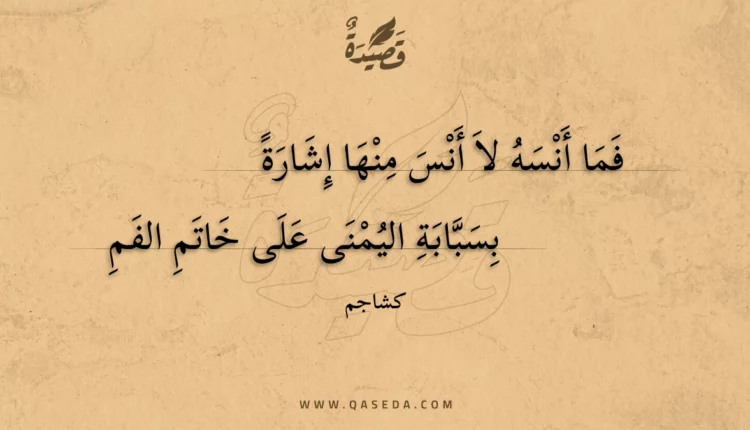 قَصِيْدَةٌ
فَمَا أَنْسَهُ لاَ أَنْسَ مِنْهَا إِشَارَةً
بِسَبَّابَةِ اليُمْنَى عَلَى خَاتَمِ الفَمِ
كشاجم
WWW.QASEDA.COM